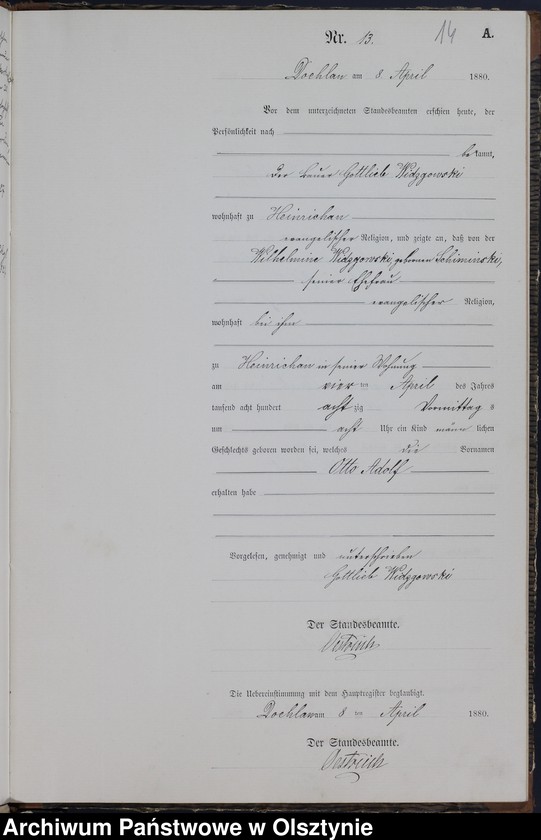 14
Nr. 13. A.
Dochlau am 8 April 1880.
Vor dem unterzeichneten Standesbeamten erschien heute, der
Persönlichkeit nach
be kannt,
der Bauer Gottlieb Widzgowski
wohnhaft zu Heinrichau
evangelischer Religion, und zeigte an, daß von der
Wilhelmine Widzgowski, geborenen Schiminski,
seiner Ehefrau
evangelischer Religion,
wohnhaft bei ihm
zu Heinrichau in seiner Wohnung
am vier ten April des Jahres
tausend acht hundert acht zig Vormittag s
um acht Uhr ein Kind männ lichen
Geschlechts geboren worden sei, welches die Vornamen
Otto Adolf
erhalten habe
Vorgelesen, genehmigt und unterschrieben
Gottlieb Widzgowski
Der Standesbeamte.
Oestreich
Die Uebereinstimmung mit dem Hauptregister beglaubigt.
Dochlau am 8 ten April 1880.
Der Standesbeamte.
Oestreich
Archiwum Państwowe w Olsztynie